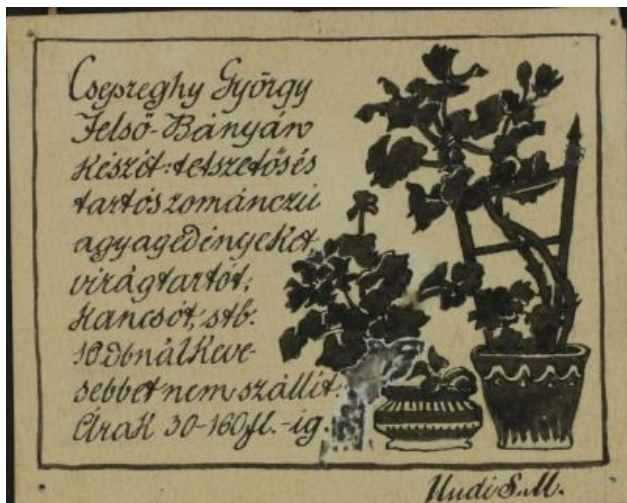 Csepreghy György
Felső-Bányán
készít: tetszetős és
tartós zománczú
agyagedényeket,
virágtartót,
kancsót, stb.
10 dbnál keve-
sebbet nem szállít.
Árak 30-160 fl.-ig.
Undi S. M.